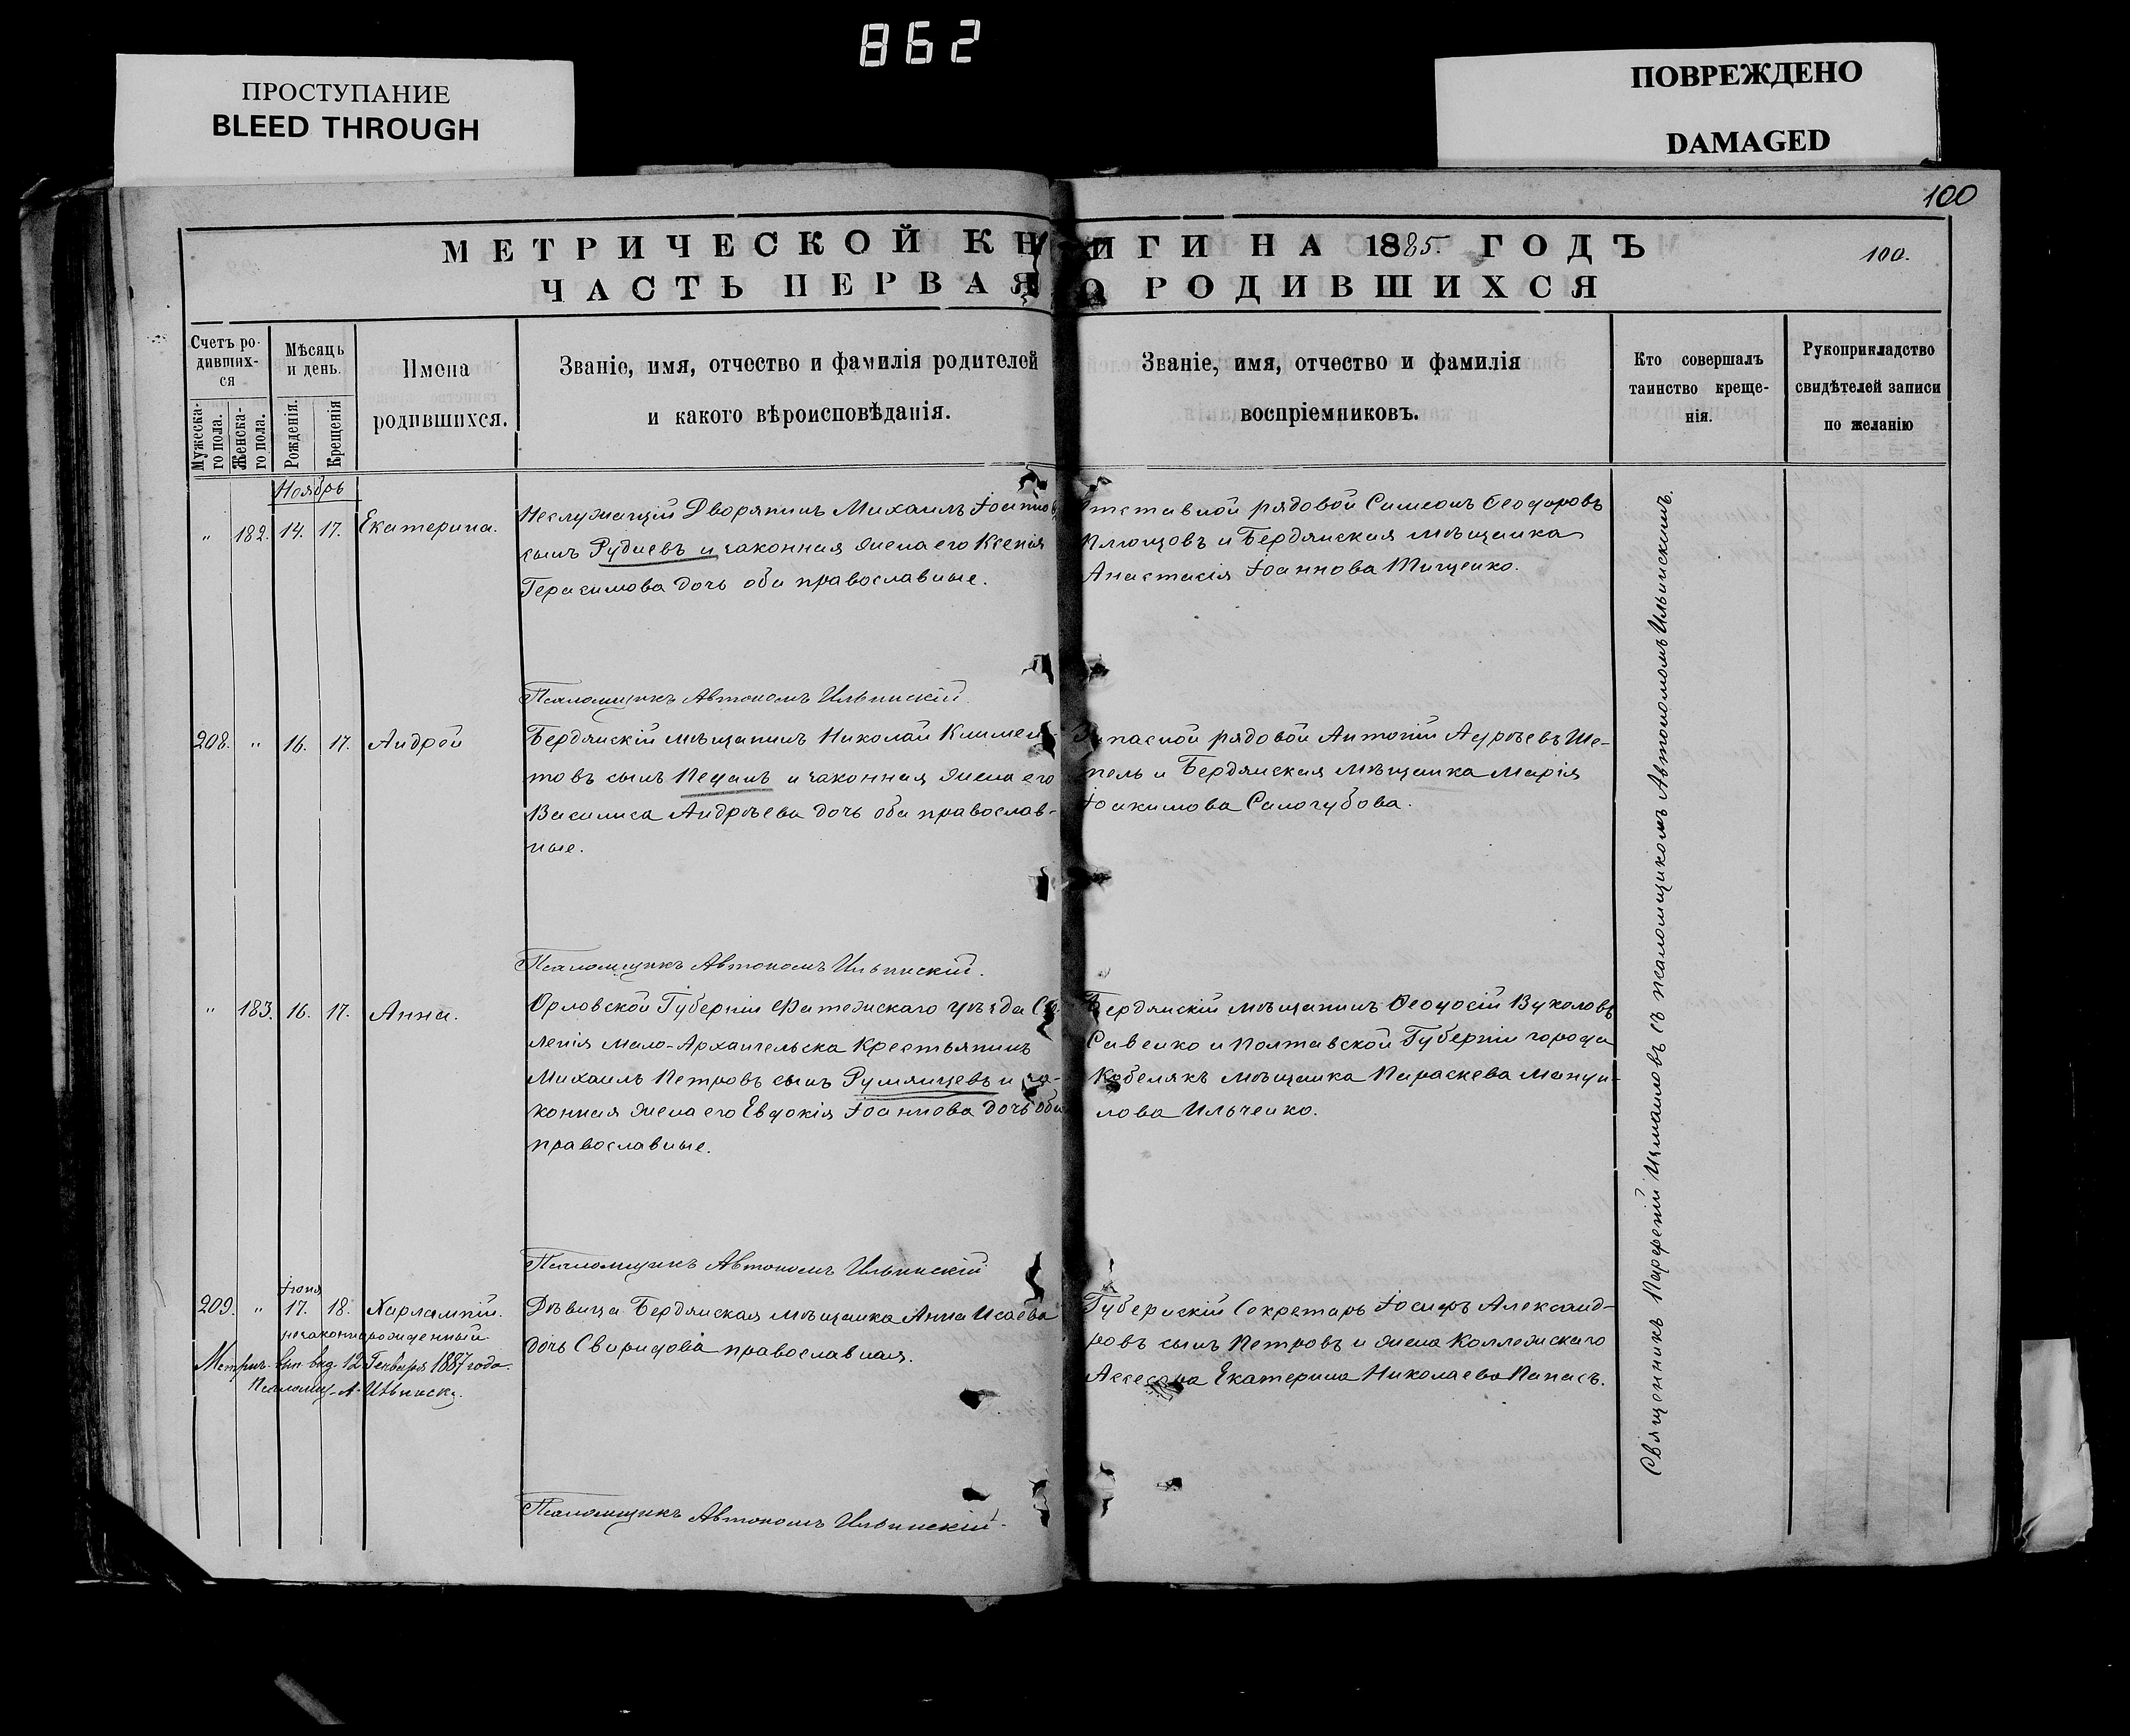 862
ПРОСТУПАНИЕ
BLEED THROUGH
ПОВРЕЖДЕНО
DAMAGED
100
МЕТРИЧЕСКОЙ КНИГИ НА 1885. ГОДЪ
100.
ЧАСТЬ ПЕРВАЯ О РОДИВШИХСЯ
Счетъ ро-
дивших-
ся
Мужеска-
го пола.
Женска-
го пола.
Мѣсяцъ
и день.
Рожденія.
Крещенія
Имена
родившихся.
Званіе, имя, отчество и фамилія родителей
и какого вѣроисповѣданія.
Званіе, имя, отчество и фамилія
воспріемниковъ.
Кто совершалъ
таинство креще-
нія.
Рукоприкладство
свидѣтелей записи
по желанію
Ноябрь
" 182. 14. 17. Екатерина.
Неслужащій Дворянинъ Михаилъ Іоанновъ
сынъ Рудиевъ и законная жена его Ксенія
Герасимова дочь оба православные.
Отставной рядовой Симеонъ Ѳеодоровъ
Плющовъ и Бердянская мѣщанка
Анастасія Іоаннова Тищенко.
Псаломщикъ Автономъ Ильинскій.
208. " 16. 17. Андрей
Бердянскій мѣщанинъ Николай Климен-
товъ сынъ и законная жена его
Василиса Андрѣева дочь оба православ-
ные.
Запасной рядовой Антоній Андрѣевъ Ше-
пель и Бердянская мѣщанка Марія
Іоакимова Самогубова.
Псаломщикъ Автономъ Ильинскій.
" 183. 16. 17. Анна.
Орловской Губерніи Фатежскаго уѣзда Се-
ленія Мало-Архангельска Крестьянинъ
Михаилъ Петровъ сынъ Румянцевъ и за-
конная жена его Евдокія Іоаннова дочь оба
православные.
Бердянскій мѣщанинъ Ѳеодосій Вуколовъ
Савенко и Полтавской Губерніи города
Кобелякъ мѣщанка Параскева Мануи-
лова Ильченко.
Псаломщикъ Автономъ Ильинскій
Іюня
209. " 17. 18. Харлампій.
незаконнорожденный
Метрич. вып. выд. 12 Генваря 1887 года.
Псаломщ. А. Ильинскі.
Дѣвица Бердянская мѣщанка Анна Исаева
дочь Свиридова православная.
Губернскій Секретарь Іосифъ Александ-
ровъ сынъ Петровъ и жена Коллежскаго
Ассесора Екатерина Николаева Папасъ.
Псаломщикъ Автономъ Ильинскій.
Священникъ Парфеній Измаиловъ съ псаломщикомъ Автономомъ Ильинскимъ.